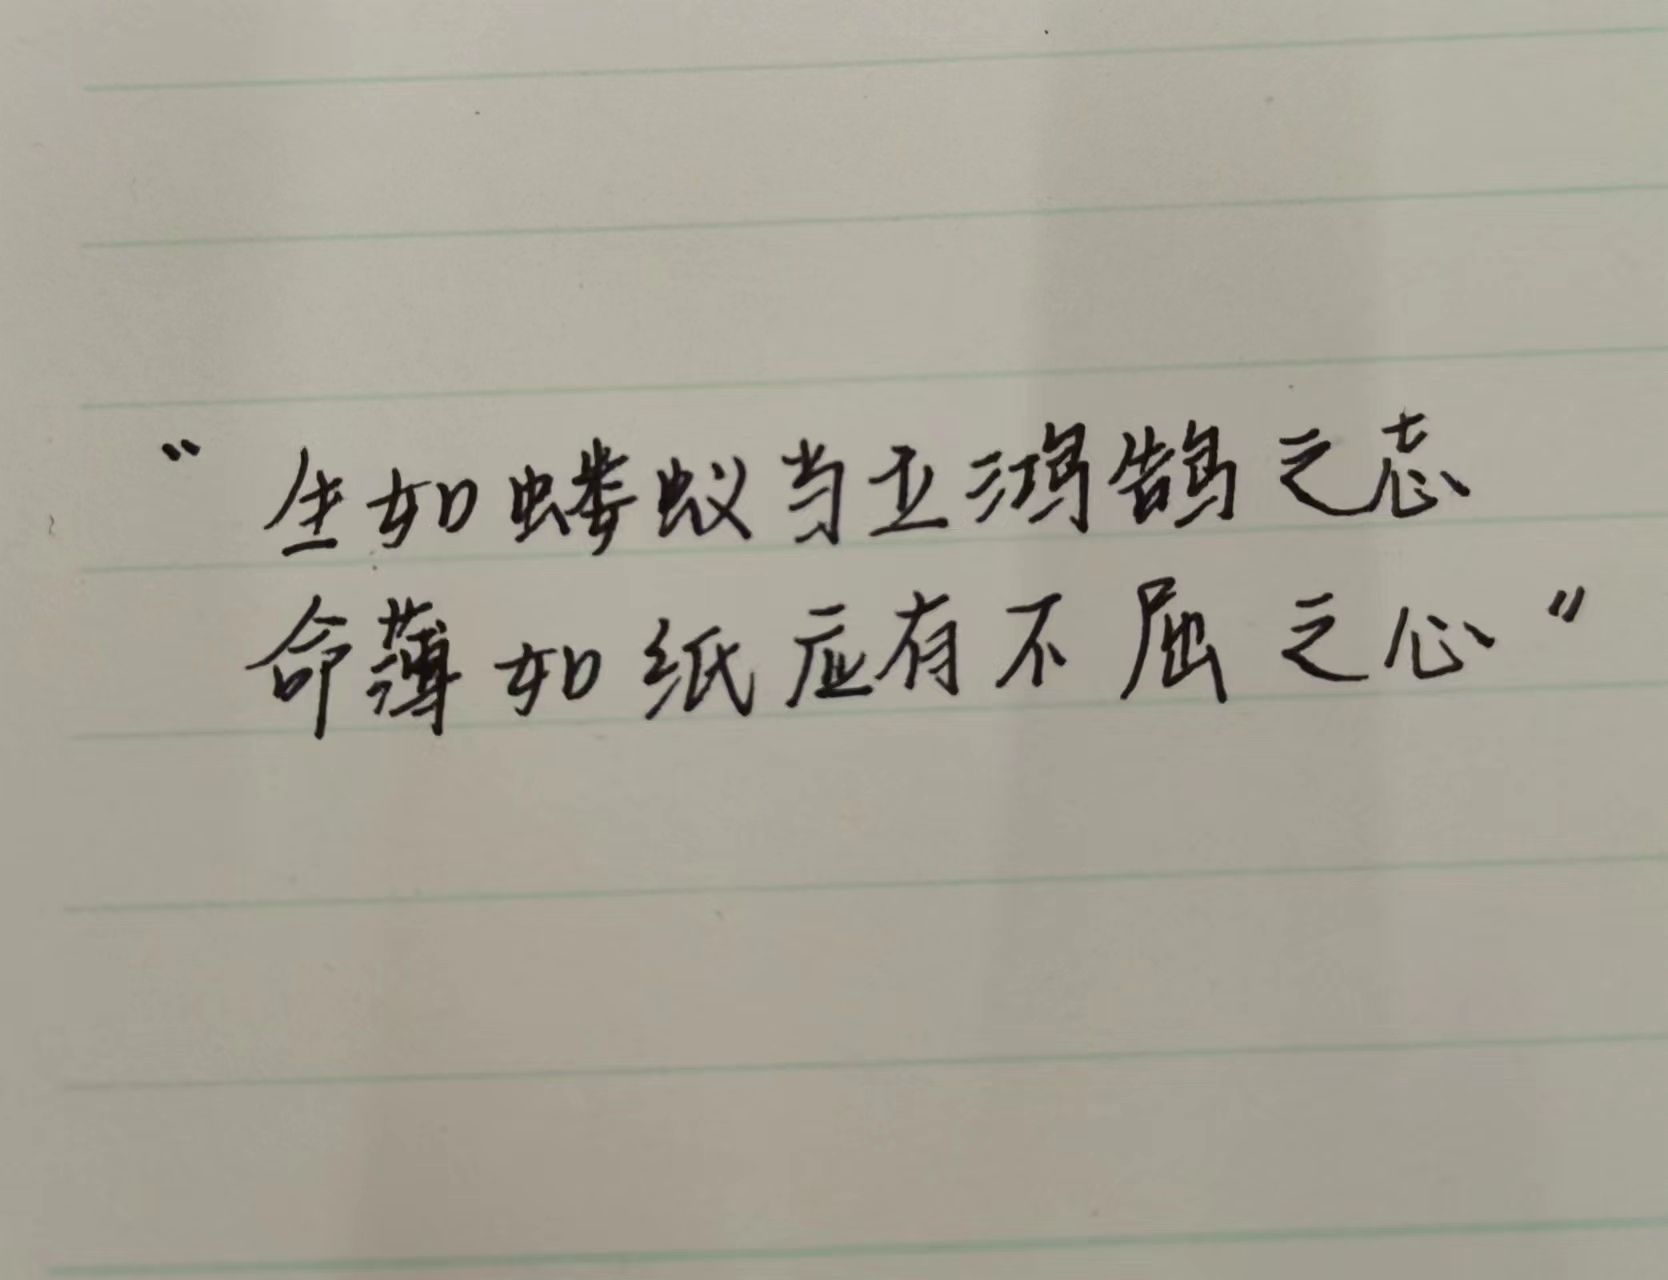 “生如蝼蚁当立鸿鹄之志
命薄如纸应有不屈之心”